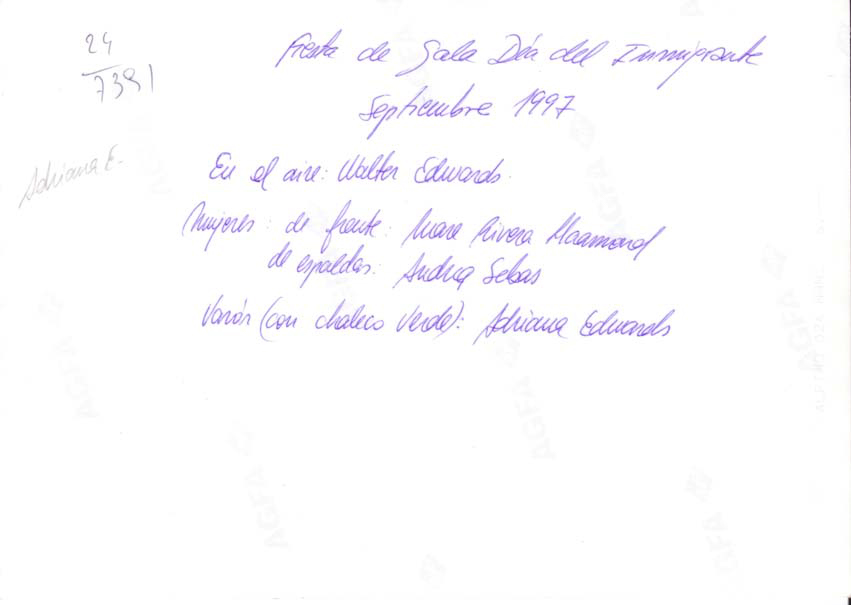 24
7381
Fiesta de Gala Día del Inmigrante
Septiembre 1997
Adriana E.
En el aire: Walter Edwards.
Mujeres: de frente: Rivera
de espaldas: Andrea Sebas
Varón (con chaleco verde): Adriana Edwards
AGFA
AGFA
AGFA
AGFA
AGFA
AGFA
AGFA
AGFA